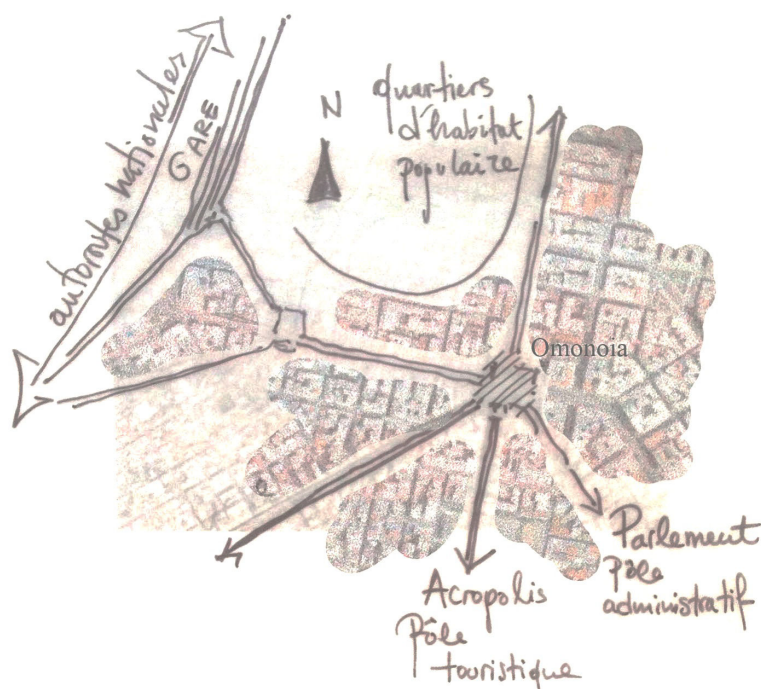 autoroutes nationales
GARE
N
quartiers
d'habitat
populaire
Omonoia
Parlement
pôle
administratif
Acropolis
Pôle
touristique